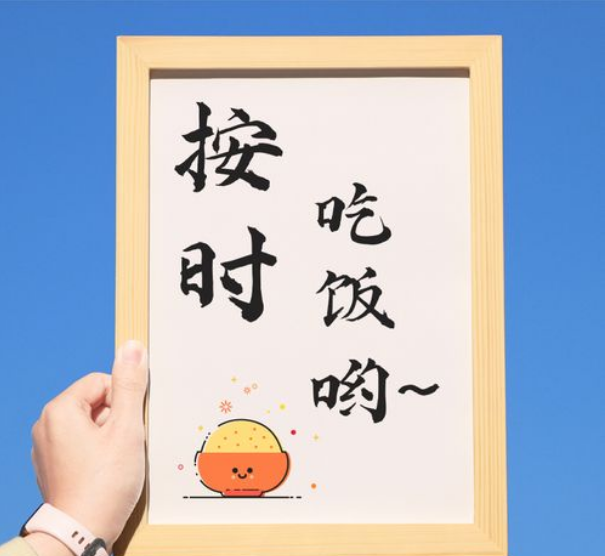 按时
吃饭哟~